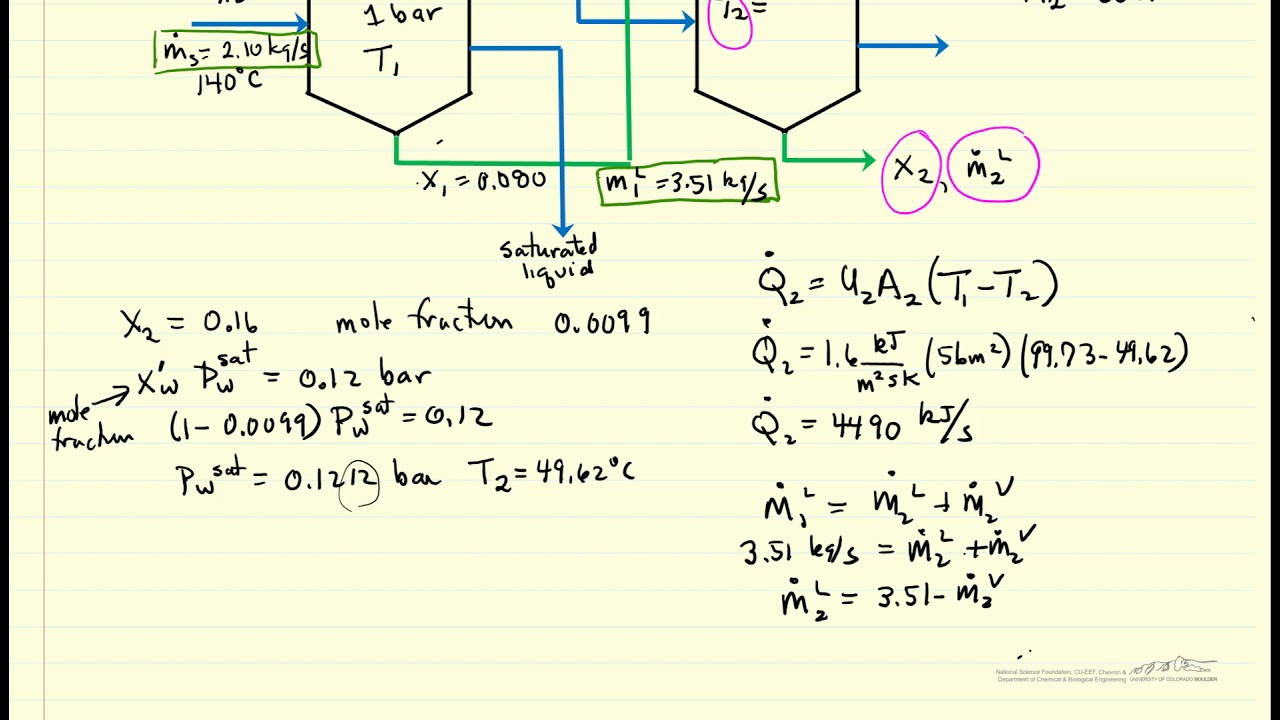 1 bar
T₂ =
ṁₛ = 2.10 kg/s
T₁
140°C
x₁ = 0.080
m₁ᴸ = 3.51 kg/s
x₂, ṁ₂ᴸ
saturated
liquid
x₂ = 0.16 mole fraction 0.0099
x'w Pwˢᵃᵗ = 0.12 bar
mole
fraction
(1 - 0.0099) Pwˢᵃᵗ = 0.12
Pwˢᵃᵗ = 0.1212 bar T₂ = 49.62°C
Q̇₂ = U₂A₂(T₁ - T₂)
Q̇₂ = 1.6 kJ/m²sK (56m²)(99.73 - 49.62)
Q̇₂ = 4490 kJ/s
ṁ₁ᴸ = ṁ₂ᴸ + ṁ₂ⱽ
3.51 kg/s = ṁ₂ᴸ + ṁ₂ⱽ
ṁ₂ᴸ = 3.51 - ṁ₂ⱽ
National Science Foundation, CU-EEF, Chevron &
Department of Chemical & Biological Engineering UNIVERSITY OF COLORADO BOULDER